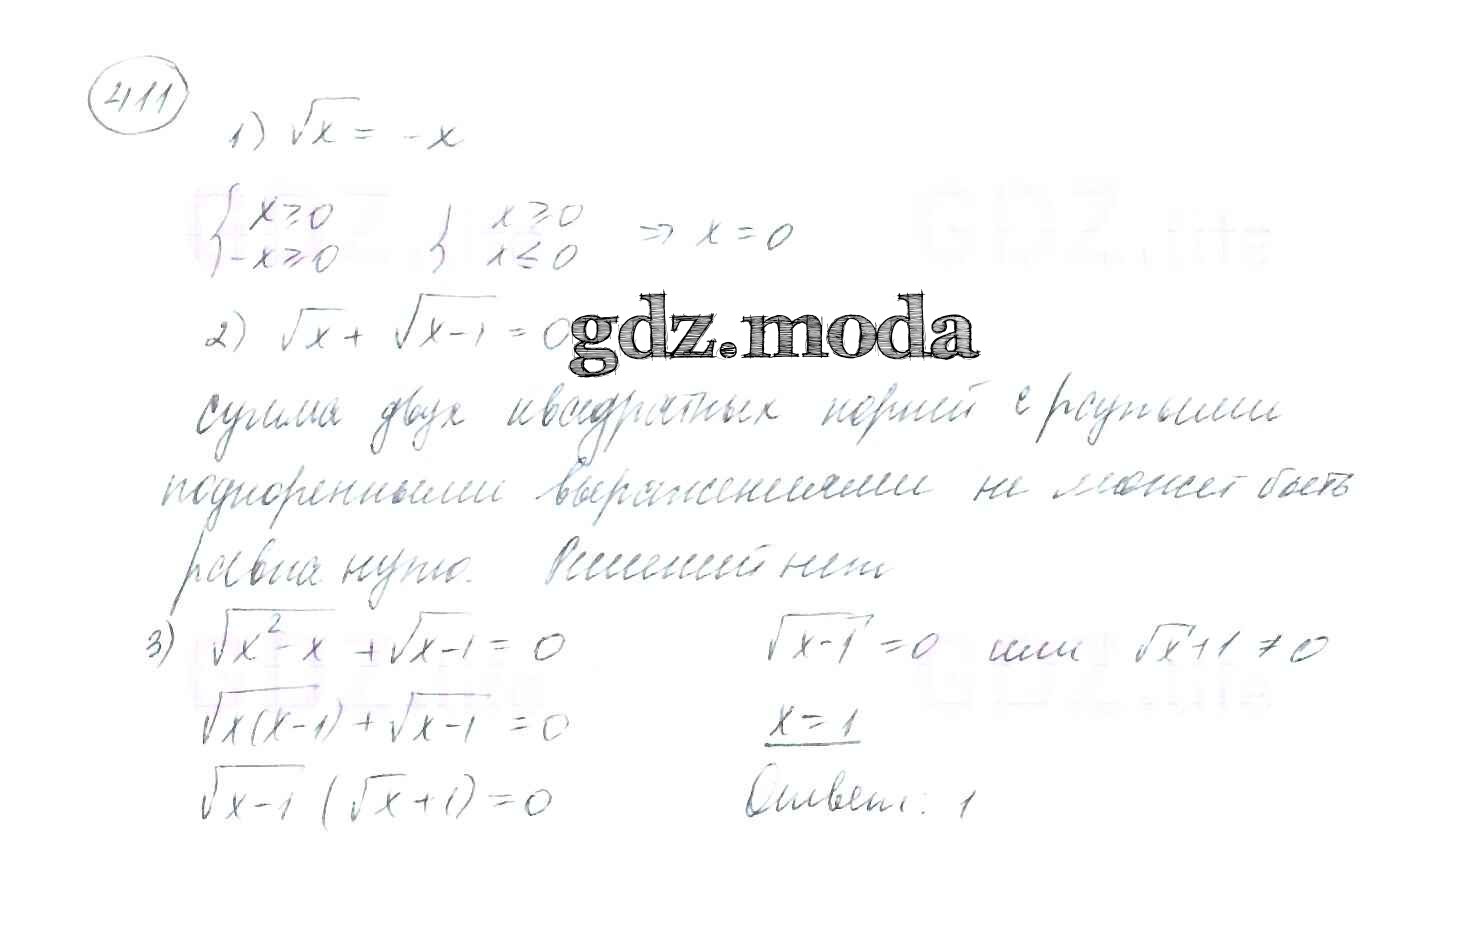 411
1) √x = -x
{ x ≥ 0 { x ≥ 0 ⇒ x = 0
-x ≥ 0 x ≤ 0
2) √x + √(x-1) = 0
gdz.moda
сумма двух квадратных корней с разными
подкоренными выражениями не может быть
равна нулю. Решений нет
3) √(x² - x) + √(x-1) = 0 √(x-1) = 0 или √x + 1 ≠ 0
√(x(x-1)) + √(x-1) = 0 x = 1
√(x-1) (√x + 1) = 0 Ответ: 1
GDZ.lite
GDZ.lite
GDZ.lite
GDZ.lite